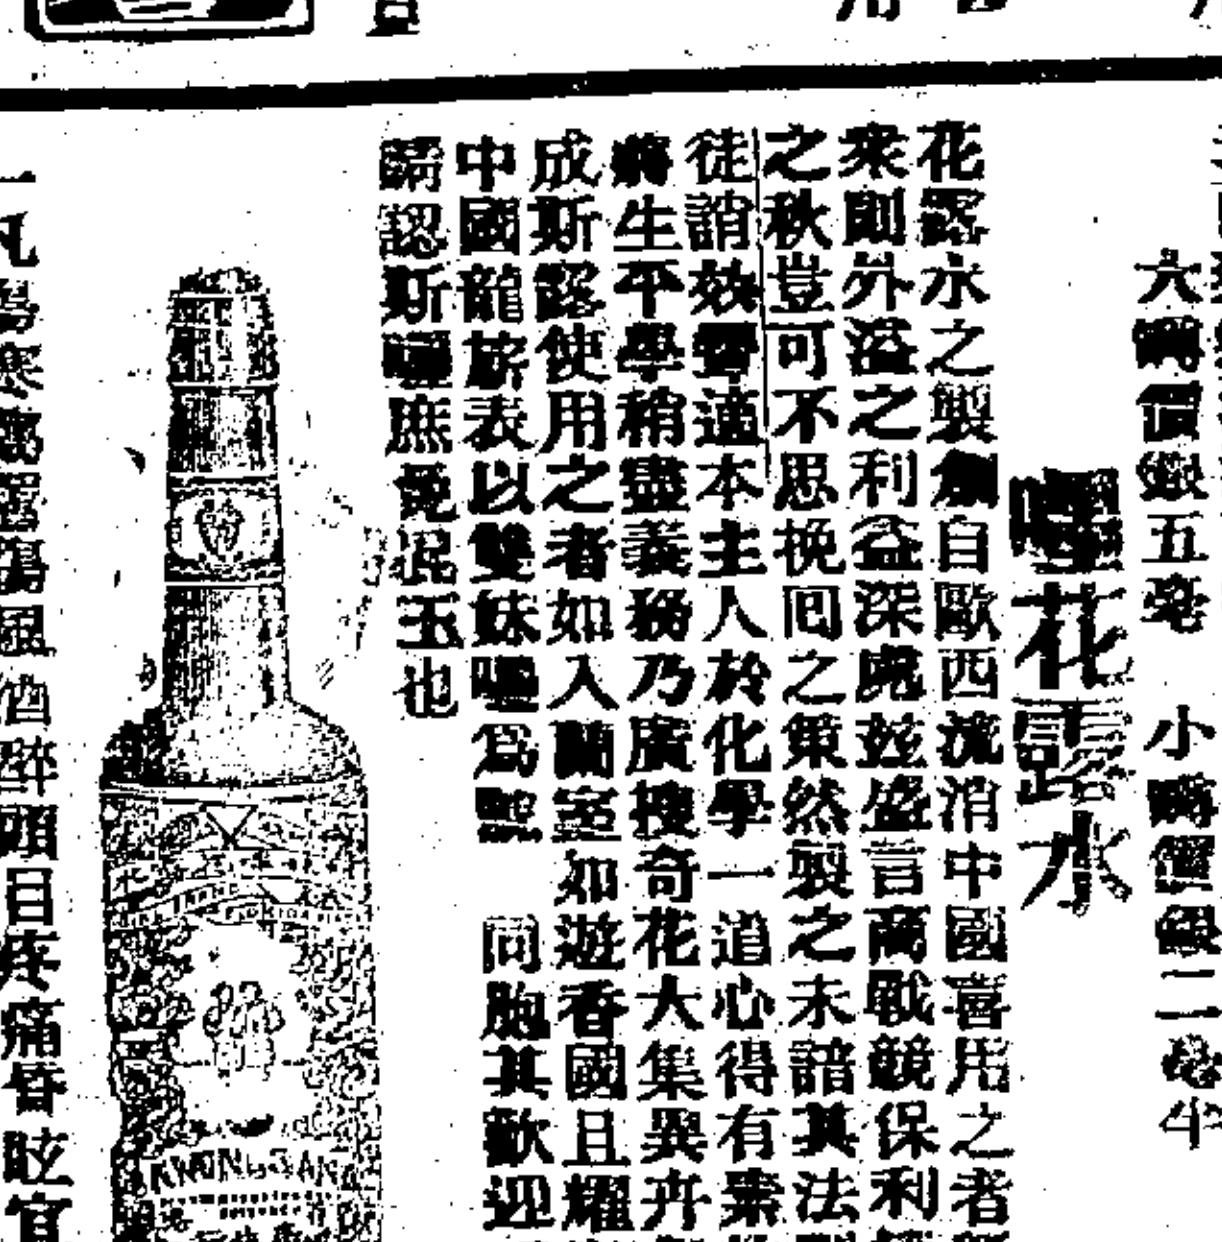 大𦉢價銀五毫 小𦉢價銀二毫半
嘜花露水
花露水之製創自歐西流消中國喜用之者
衆則外溢之利益深處茲盛言商戰競保利
之秋豈可不思挽囘之策然製之未諳其法
徒誚效顰適本主人於化學一道心得有素
將生平學稍盡義務乃廣搜奇花大集異卉
成斯露使用之者如入蘭室如遊香國且耀
中國龍旂表以雙妹嘜爲號 同胞其歡迎
請認斯嘜庶免混玉也
KWONG SANG
一凡傷寒感冒傷風酒醉頭目疼痛昏眩